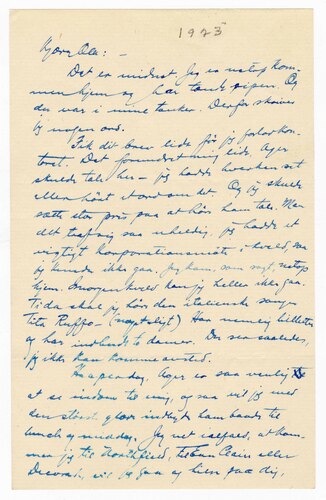 1923
Kjære Ole: -
Det er midnat. Jeg er netop kom-
men hjem og har tændt pipen. Og
du var i mine tanker. Derfor skriver
jeg nogen ord.
Fik dit brev lidt før jeg forlod kon-
toret. Det forundret mig lidt. Ager
skulde tale her - jeg hadde hverken set
eller hørt et ord om det. Og jeg skulde
sætte stor pris paa at høre ham tale. Men
det traf sig saa uheldig, jeg hadde et
vigtigt korporationsmøte i kveld saa
jeg kunde ikke gaa. Jeg kom, som sagt, netop
hjem. Imorgen kveld kan jeg heller ikke gaa.
Tida skal jeg høre den italienske sanger
Tita Ruffo - Han
og har indbudt to damer. Det ser saaledes,
jeg ikke kan komme avsted.
Haaper dog, Ager er saa venlig
at se indom til mig, og saa vil jeg med
den største glæde indbyde ham baade til
lunch og middag. Jeg vet ialfald, at kom-
mer jeg til Northfield, Eau Claire eller
Decorah, vil jeg gaa og hilse paa dig,